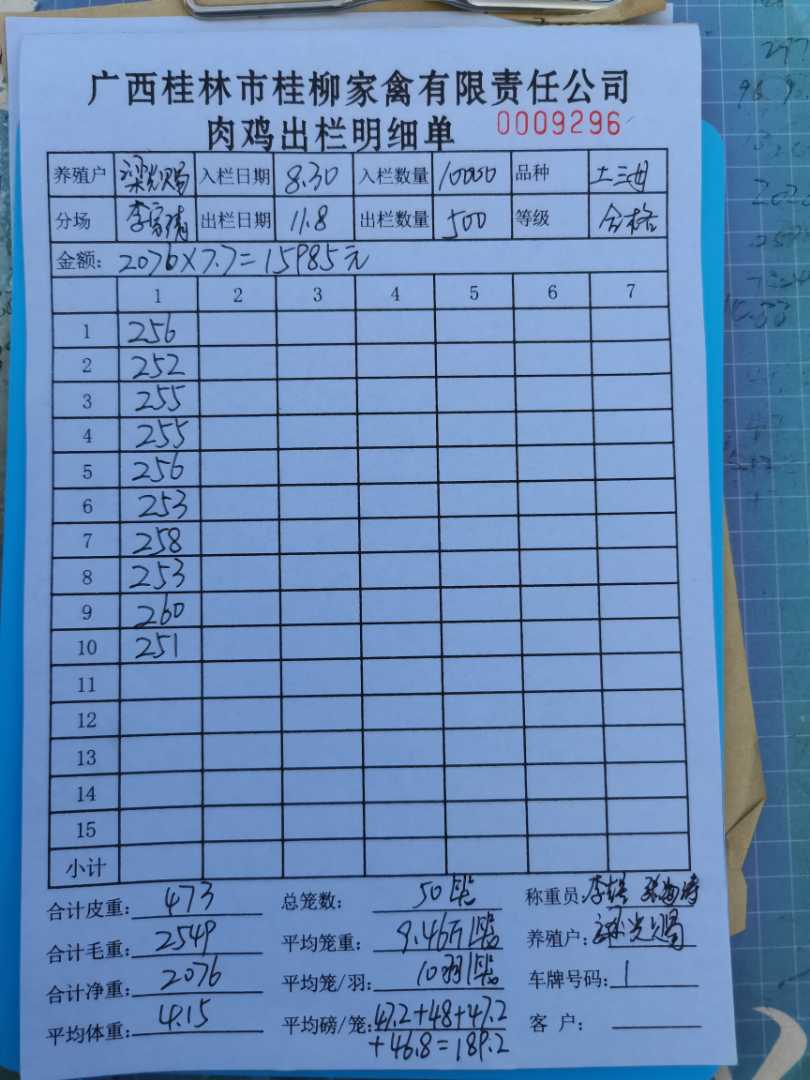 广西桂林市桂柳家禽有限责任公司
肉鸡出栏明细单 0009296
养殖户 梁光赐 入栏日期 8.30 入栏数量 10000 品种 土三母
分场 出栏日期 11.8 出栏数量 500 等级 合格
金额: 2076×7.7=15985元
1 2 3 4 5 6 7
1 256
2 252
3 255
4 255
5 256
6 253
7 258
8 253
9 260
10 251
11
12
13
14
15
小计
合计皮重: 473 总笼数: 50笼 称重员:
合计毛重: 2549 平均笼重: 9.46斤/笼 养殖户: 梁光赐
合计净重: 2076 平均笼/羽: 10羽/笼 车牌号码: 1
平均体重: 4.15 平均磅/笼: 47.2+48+47.2 客户:
+46.8=189.2